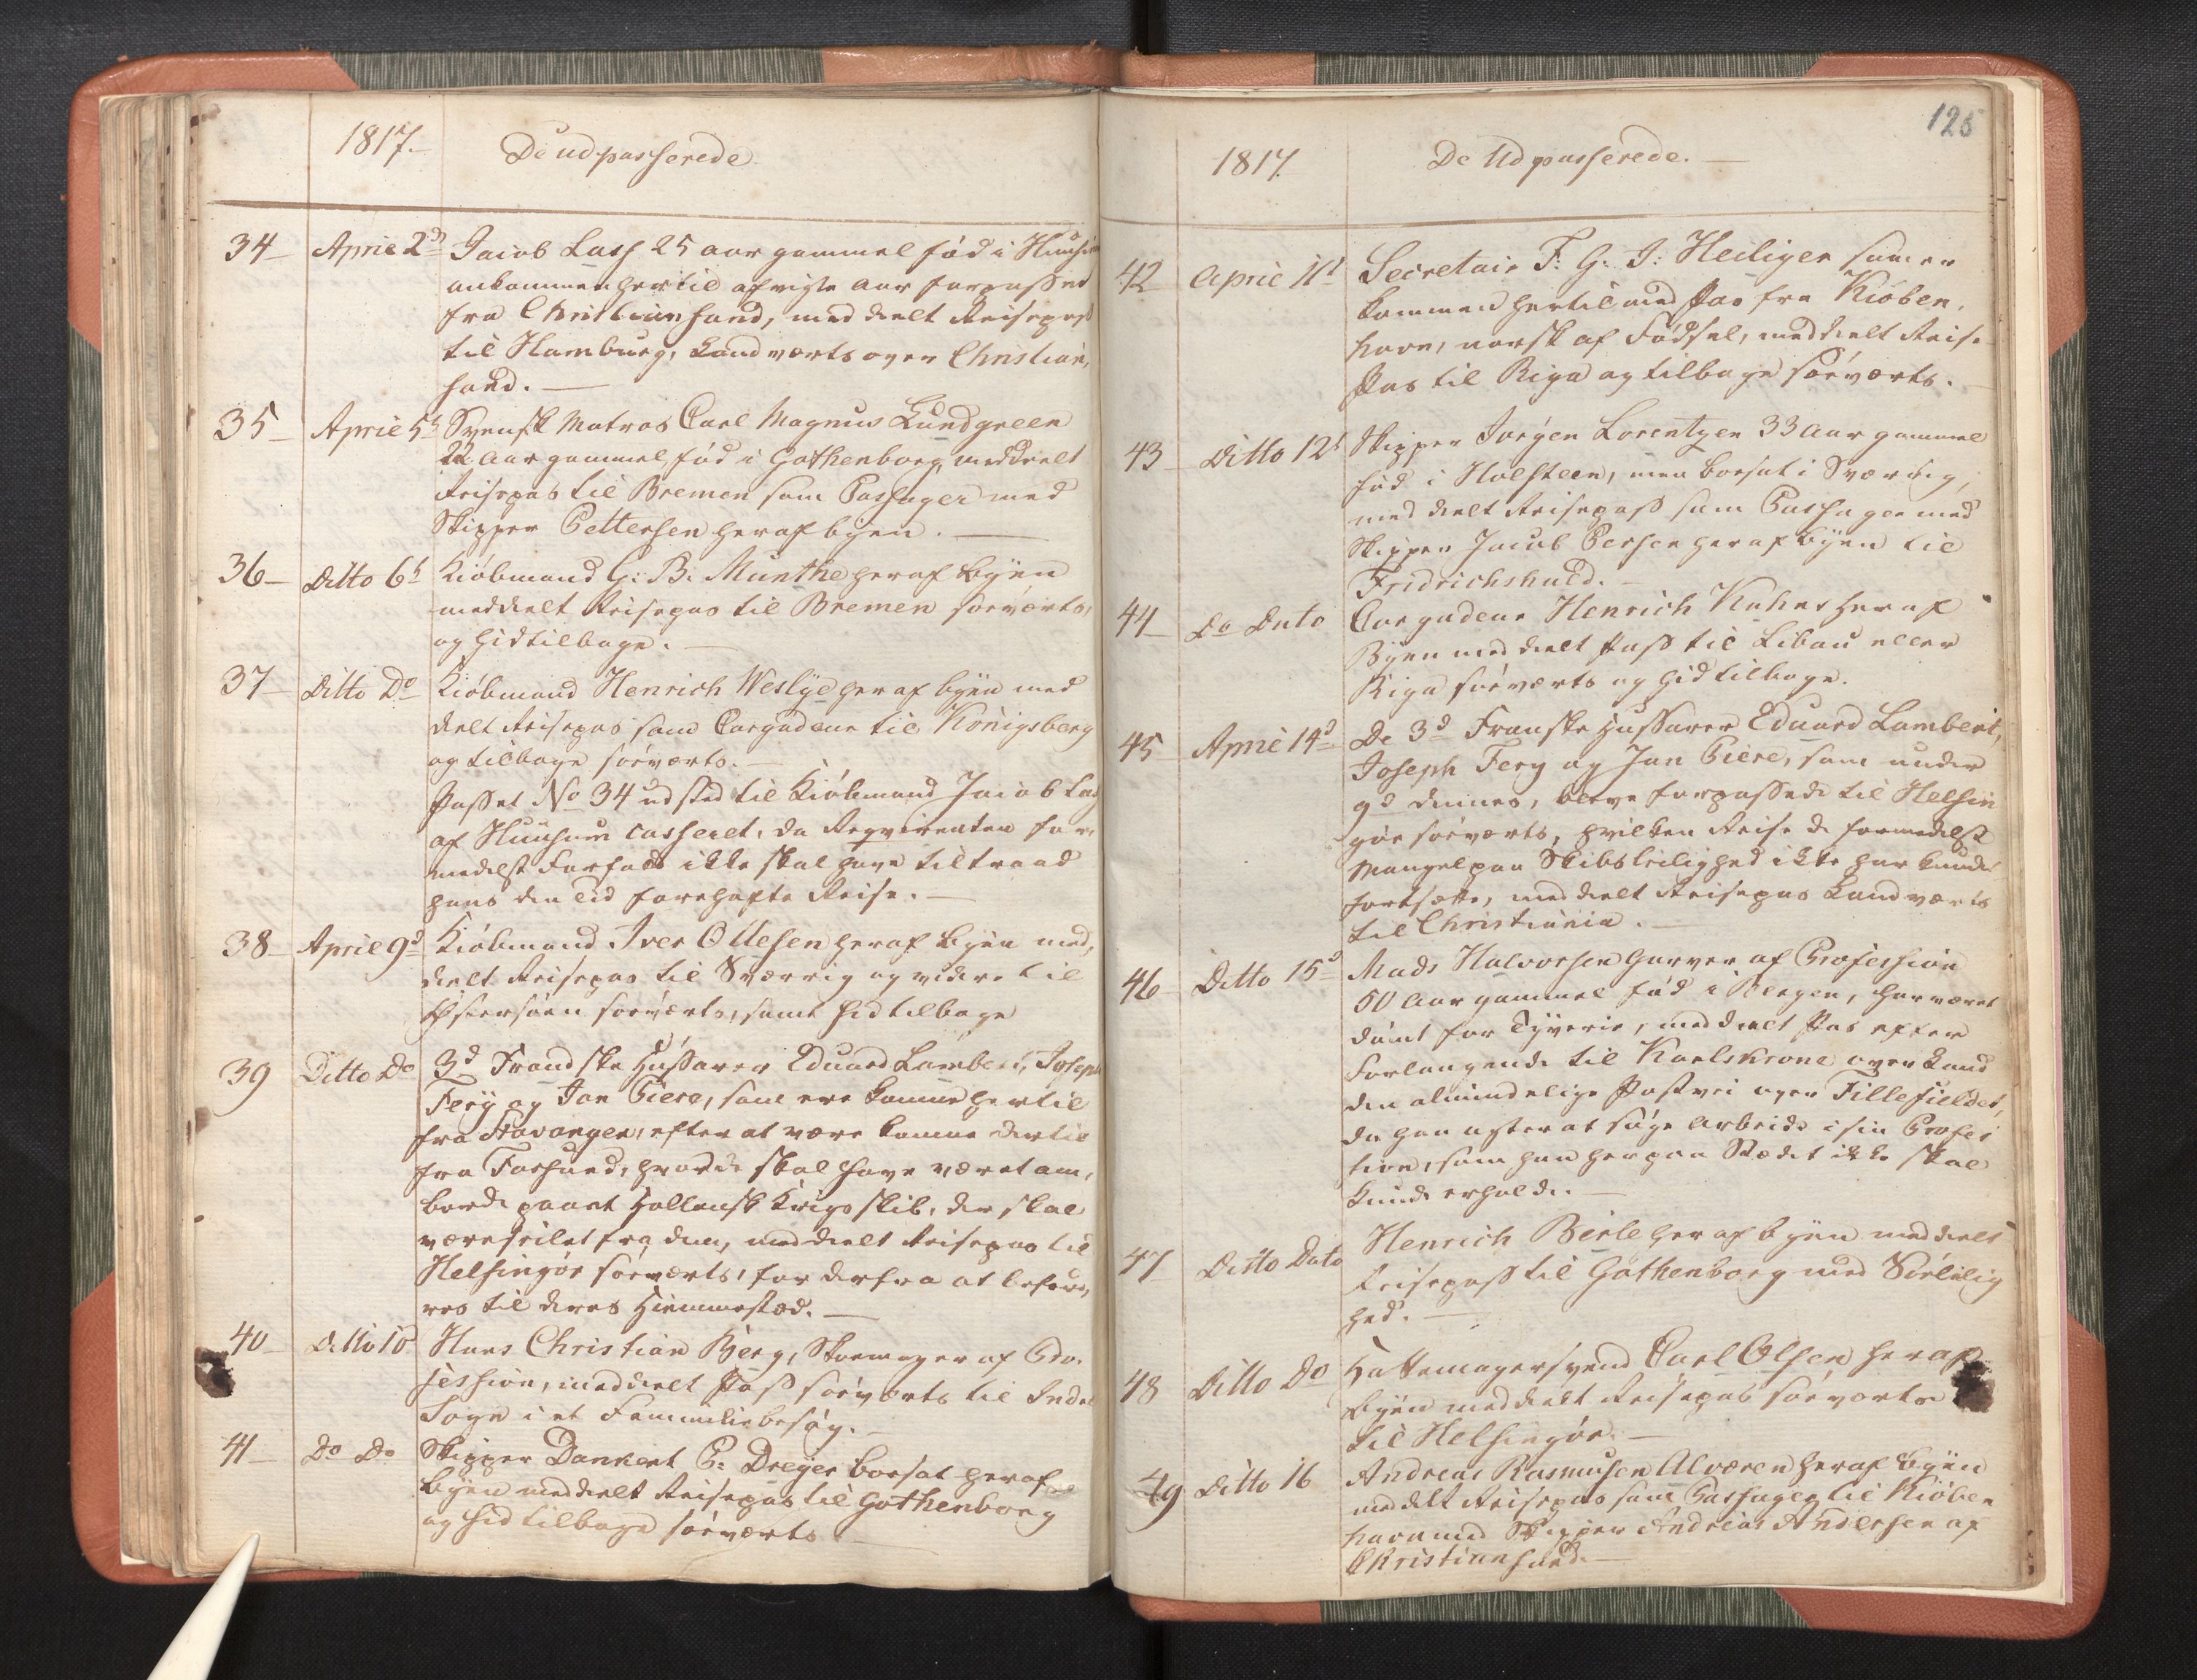 1817.
De udpasserede
34 April 2d Jacob Lass 25 aar gammel fød i Huusum
ankommen hertil afvigte aar forpasset
fra Christiansand, meddelt Reisepass
til Hamburg, Landværts over Christian,
sand.
35 April 5t Svensk Matros Carl Magnus Lundgreen
22 Aar gammel, fød i Gothenborg, meddeelt
Reisepas til Bremen som Passager med
Skipper Pettersen her af byen.
36 Ditto 6t Kiøbmand G: B: Munthe her af Byen
meddeelt Reisepas til Bremen søeværts,
og hid tilbage.
37 Ditto Do Kiøbmand Henrich Weslye her af byen med
deelt Reisepas som Cargadeur til Königsberg
og tilbage søeværts.
Passet No 34 udsted til Kiøbmand Jacob Lass
af Huusum casseret, da Reqvirenten for
medelst Forfald ikke skal have tiltraad
hans den Tid forehafte Reise.
38 April 9d Kiøbmand Iver Ollesen her af Byen med,
deelt Reisepas til Sverrig og videre til
Østersøen søeværts, samt hid tilbage
39 Ditto Do 3d Frandske Hussarer Eduard Lambert, Joseph
Fery og Jan Piere, som ere komne hertil
fra Stavanger, efter at være komne dertil
fra Farsund, hvor de skal have været om,
borde paa et Hollansk Krigsskib, der skal
være seilet fra dem, meddeelt Reisepas til
Helsingør søeværts, for derfra at befor,
res til deres Hiemmested.
40 Ditto 10 Hans Christian Berg, Skoemager af Pro,
fession, meddeelt Pass søeværts til Indvi
Sogn i et Fammiliebesøg.
41 Do Do Skipper Dankert P: Dreyer boesat her af
byen meddeelt Reisepas til Gothenborg
og hid tilbage søeværts
125
1817.
De Udpasserede.
42 April 11t Secretair F: G: J: Heiliger som er
kommen hertil med Pas fra Kiøben,
havn, norsk af Fødsel, meddeelt Reise
Pas til Riga og tilbage søeværts.
43 Ditto 12t Skipper Jørgen Lorentzen 33 Aar gammel
fød i Holsteen, men boesat i Sverrig,
meddeelt Reisepass som Passager med
Skipper Jacob Persen her af byen til
Fridrichshald.
44 Do Dato Cargadeur Henrich Kahrs her af
Byen meddeelt Pass til Libau eller
Riga søeværts og hid tilbage.
45 April 14d De 3d Franske Hussarer Eduard Lambert,
Joseph Fery og Jan Piere, som under
9d dennes, bleve forpassede til Helsin
gør søeværts, hvilken Reise de formedelst
Mangel paa Skibsleilighed ikke har kundet
fortsætte, meddeelt Reisepas Landværts
til Christiania.
46 Ditto 15d Mads Halvorsen Garver af Profession
50 Aar gammel fød i Bergen, har været
dømt for Tyverie, meddeelt Pas efter
Forlangende til Karlskrone over Land
den almindelige Postvei over Fillefieldet,
da han agter at søge Arbeide i sin Profes
sion, som han her paa Stædet ikke skal
kunde erholde.
47 Ditto Dato Henrich Berle her af byen meddeelt
Reisepass til Gothenborg med Søelelig
hed.
48 Ditto Do Hattemagersvend Carl Olsen her af
Byen meddeelt Reisepas søeværts
til Helsingør.
49 Ditto 16 Andreas Rasmusen Alværen her af Byen
meddelt Reisepas som Passager til Kiøben
havn med Skipper Andreas Andersen af
Christiansund.